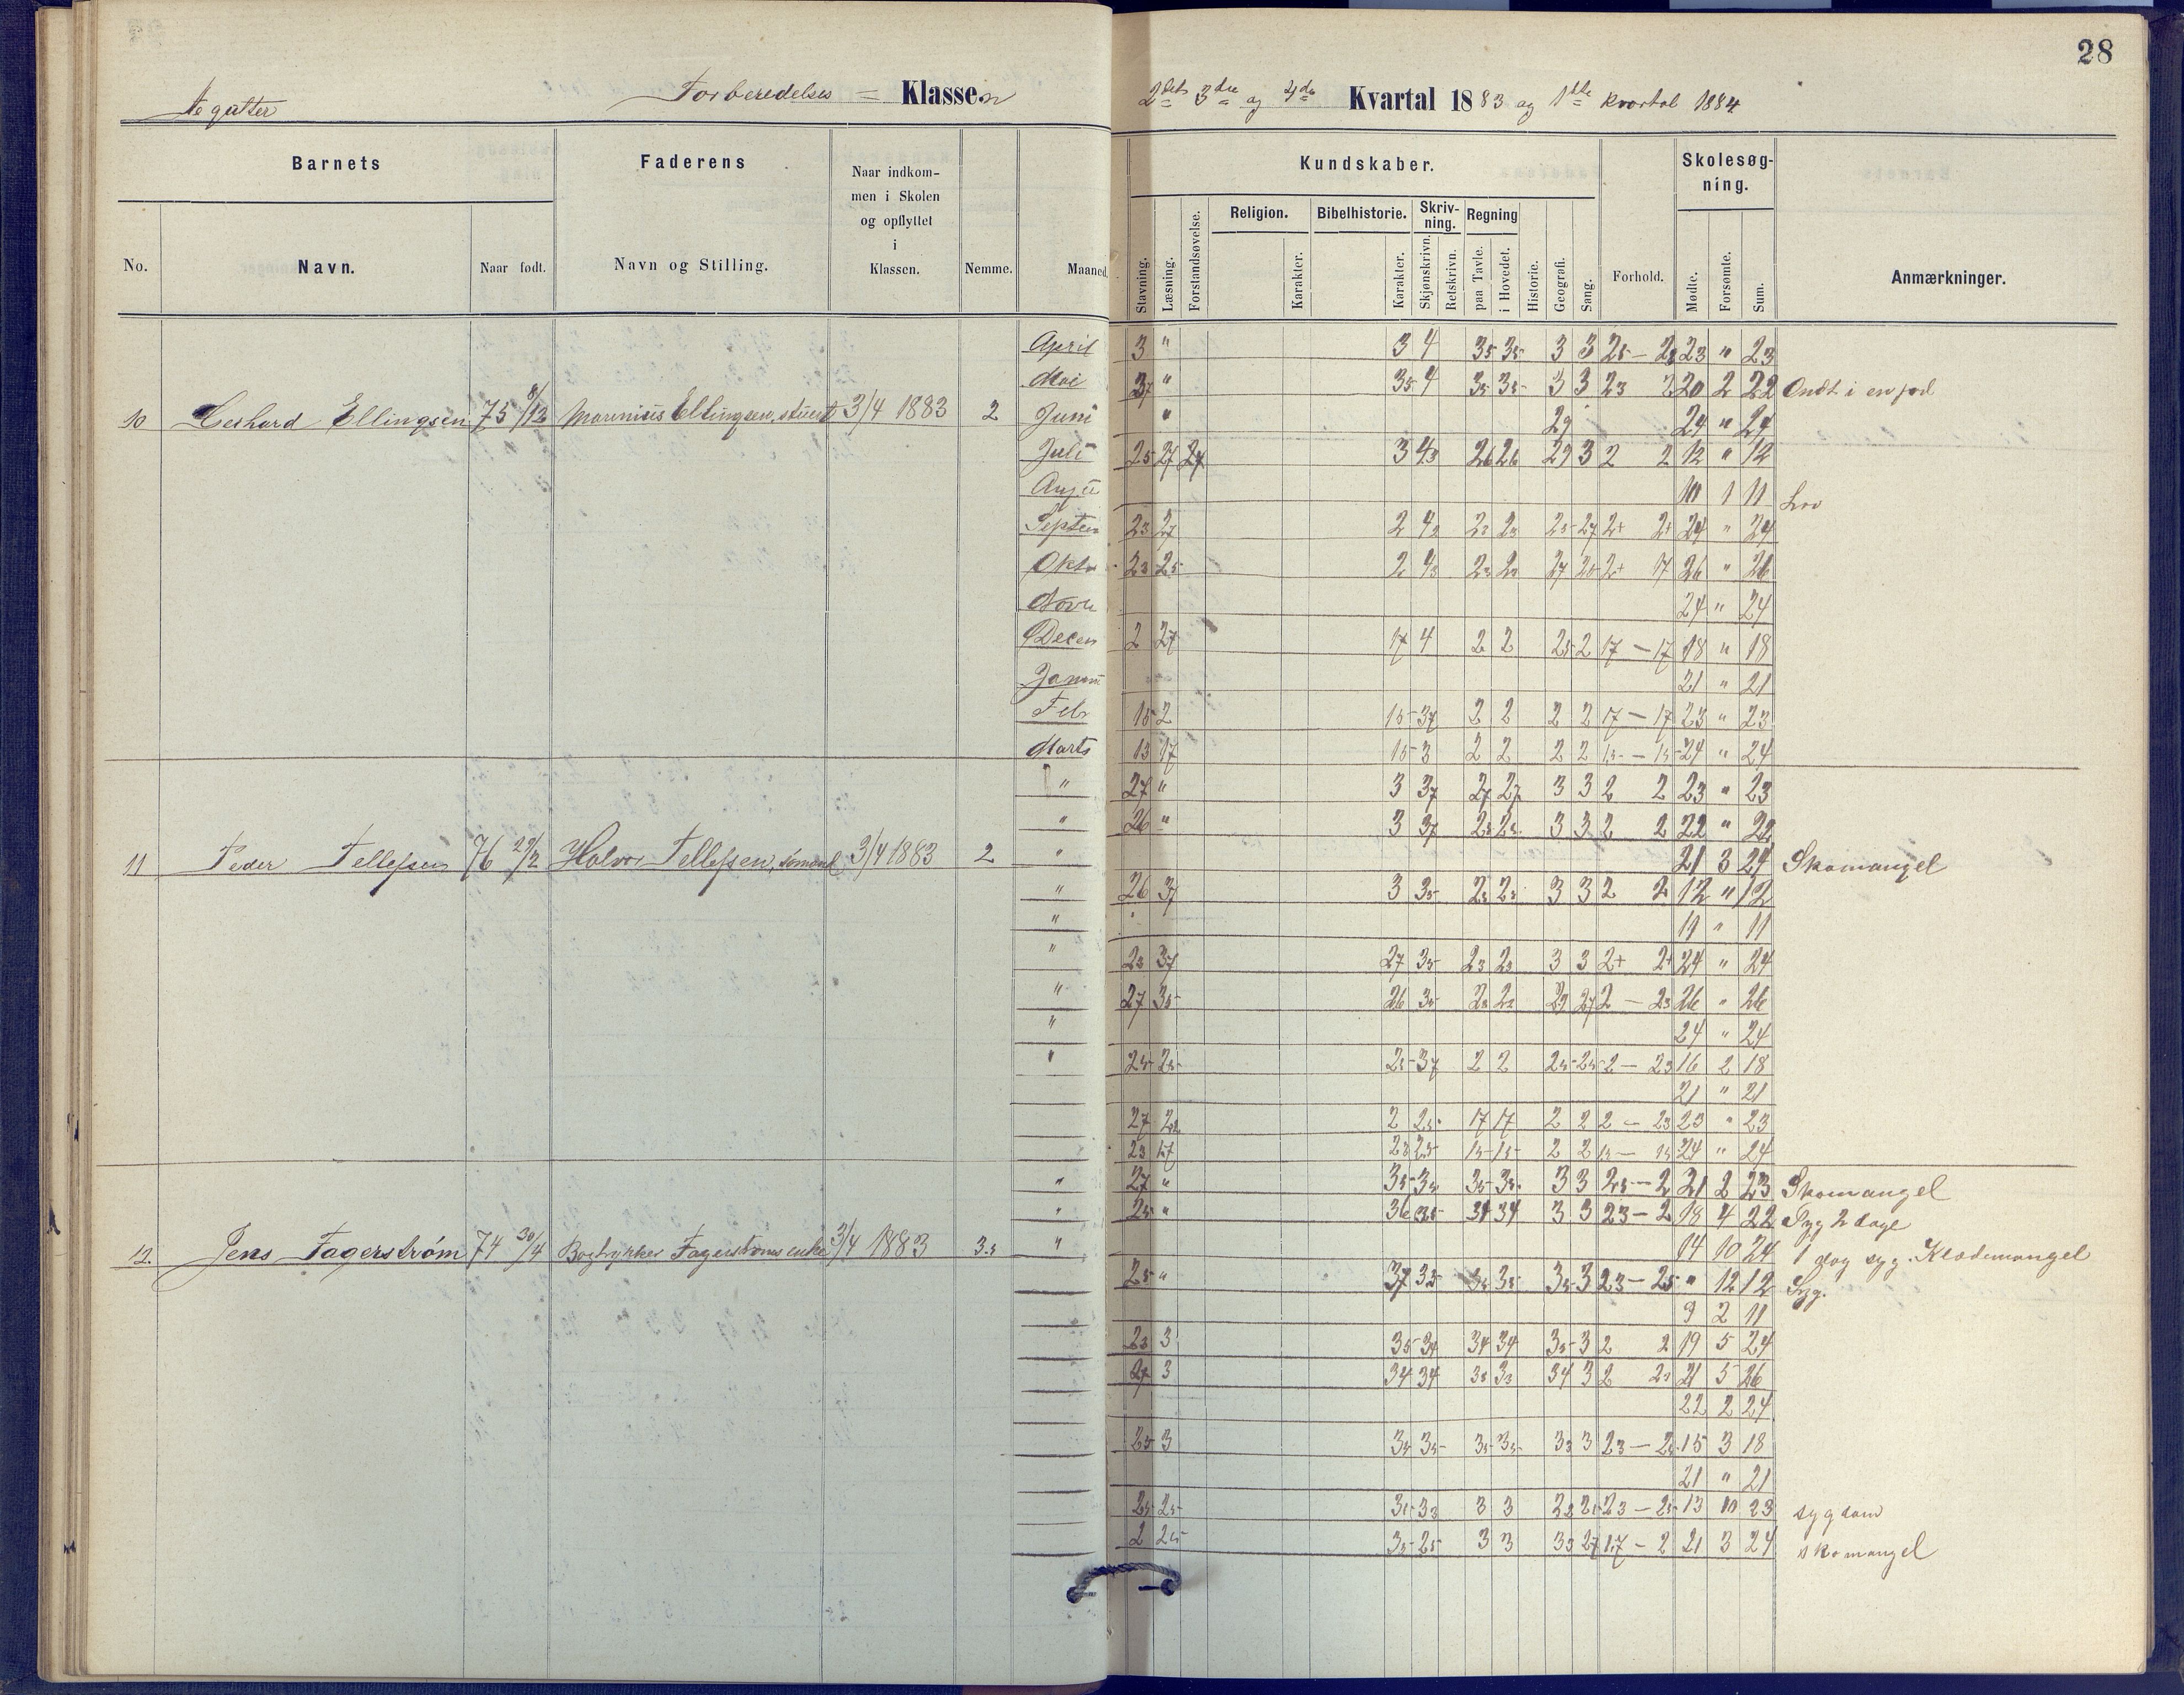 28
Forberedelses = Klassen
2det 3die og 4de Kvartal 1883 og 1ste kvartal 1884
Barnets
Faderens
Naar indkom-
men i Skolen
og opflyttet
i
Klassen.
No.
Navn.
Naar født.
Navn og Stilling.
Nemme.
Maaned.
Kundskaber.
Skolesøg-
ning.
Religion.
Bibelhistorie.
Skriv-
ning.
Regning
Stavning.
Læsning.
Forstandsøvelse.
Karakter.
Karakter.
Skjønskrivn.
Retskrivn.
paa Tavle.
i Hovedet.
Historie.
Geografi.
Sang.
Forhold.
Mødte.
Forsømte.
Sum.
Anmærkninger.
April 3 " 3 4 35 35 3 3 25 — 23 " 23
Mai 37 " 35 4 35 35 3 3 23 2 20 2 22 Ondt i en fod
10 Gerhard Ellingsen 75 8/12 Marenius Ellingsen, stuert 3/4 1883 2 Juni " 29 24 " 24
Juli 25 27 27 3 43 26 26 29 3 2 2 12 " 12
Augu 10 1 11 Lov
Septem 23 27 2 4 25 27 2+ 2+ 24 " 24
Okto 23 25 2 27 2+ 17 26 " 26
Nove 24 " 24
Decem 2 27 17 4 2 2 25 2 17 — 17 18 " 18
Janua 21 " 21
Feb 15 2 15 37 2 2 2 2 17 — 17 23 " 23
Marts 13 17 15 3 2 2 2 2 15 — 15 24 " 24
" 27 " 3 37 27 27 3 3 2 2 23 " 23
" 26 " 3 37 3 3 2 2 22 " 22
11 Peder Tellefsen 76 29/2 Halvor Tellefsen, sømand 3/4 1883 2 " 21 3 24 Skomangel
" 26 37 3 35 3 3 2 2 12 " 12
" 11 " 11
" 23 37 27 35 23 23 3 3 2+ 2+ 24 " 24
" 27 35 26 35 29 27 2 — 23 26 " 26
" 24 " 24
" 25 25 25 37 2 2 25 25 2 — 23 16 2 18
21 " 21
27 2 25 17 17 2 2 2 — 23 23 " 23
23 17 23 25 15 15 2 2 15 — 15 24 " 24
" 27 " 35 35 35 35 3 3 25 — 2 21 2 23 Skomangel
" 25 " 36 35 34 34 3 3 23 — 2 18 4 22 Syg 2 dage
12. Jens Fagerstrøm 74 30/4 Bogtrykker Fagerstrøms enke 3/4 1883 3.5 " 14 10 24 1 dag syg. Klædemangel
25 " 37 35 35 35 35 3 23 — 25 " 12 12 Syg.
9 2 11
23 3 35 34 34 34 35 3 2 2 19 5 24
27 3 34 34 35 33 34 3 2 21 5 26
22 2 24
25 3 35 35 35 35 33 3 23 — 25 15 3 18
21 " 21
25 25 35 33 3 3 23 — 25 13 10 23 sygdom
2 25 35 25 3 3 33 27 17 — 2 21 3 24 skomangel